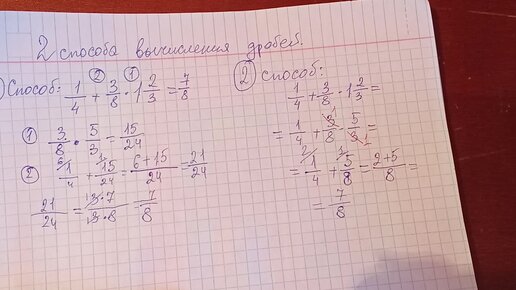 2 способа вычисления дробей.
1) Способ: 1/4 + 3/8 · 1 2/3 = 7/8
① 3/8 · 5/3 = 15/24
② 1/4 + 15/24 = 6+15/24 = 21/24
21/24 = 3·7/3·8 = 7/8
② способ:
1/4 + 3/8 · 1 2/3 =
= 1/4 + 3/8 · 5/3 =
= 1/4 + 5/8 = 2+5/8 =
= 7/8